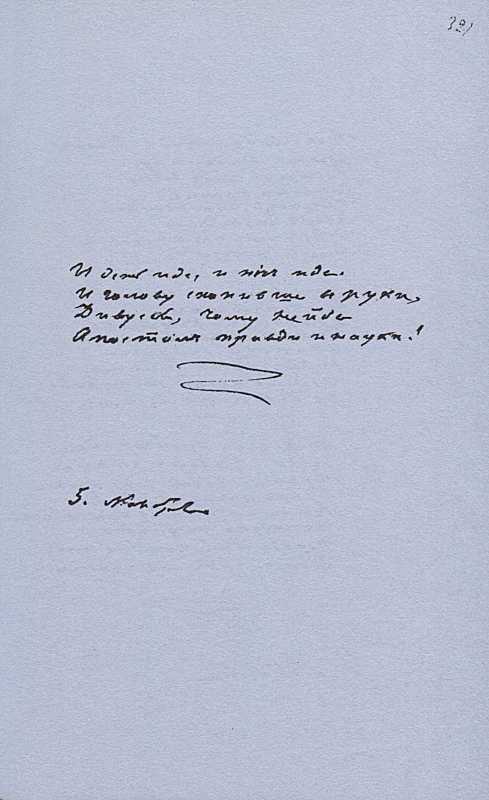 321
И день иде, и ніч иде.
И голову схопивши в руки,
Дивуєсся, чому не йде
Апостол правди и науки!
5. Ноября